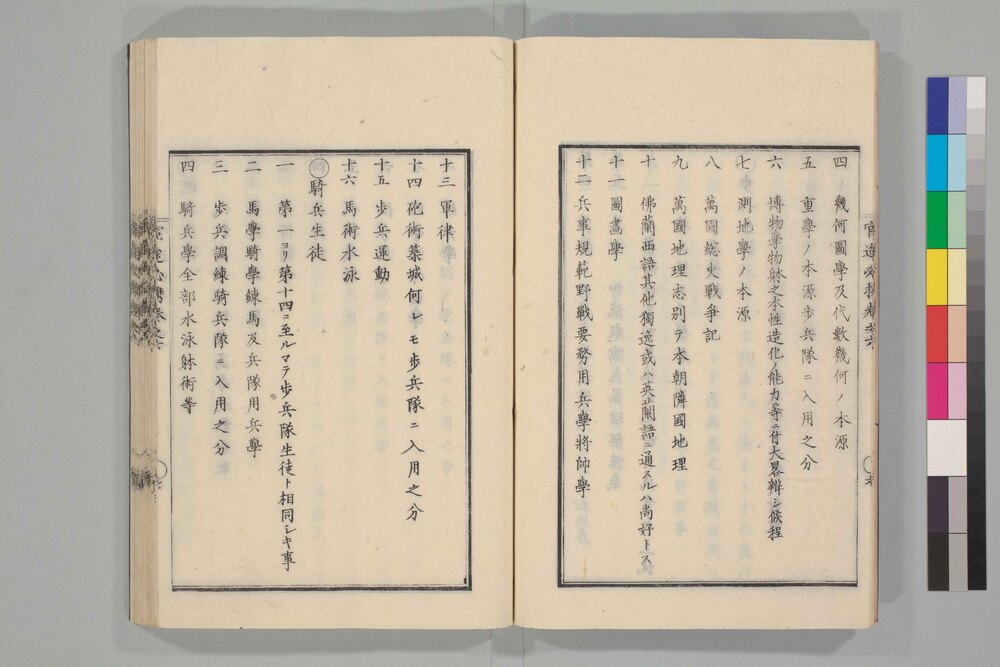 四 幾何圖學及代數幾何ノ本源
五 重學ノ本源歩兵隊ニ入用之分
六 博物學物躰之本性造化ノ能力等ニ付大畧辨シ候程
七 測地學ノ本源
八 萬國総史戰爭記
九 萬國地理志別テ本朝隣國地理
十 佛蘭西語其他獨逸或ハ英蘭語ニ通スルハ尚好トス
十一 圖畫學
十二 兵事規範野戰要務用兵學將帥學
十三 軍律
十四 砲術築城何レモ歩兵隊ニ入用之分
十五 歩兵運動
十六 馬術水泳
四 騎兵生徒
一 第一ヨリ第十四ニ至ルマテ歩兵隊生徒ト相同シキ事
二 馬學騎學練馬及兵隊用兵學
三 歩兵調練騎兵隊ニ入用之分
四 騎兵學全部水泳躰術等